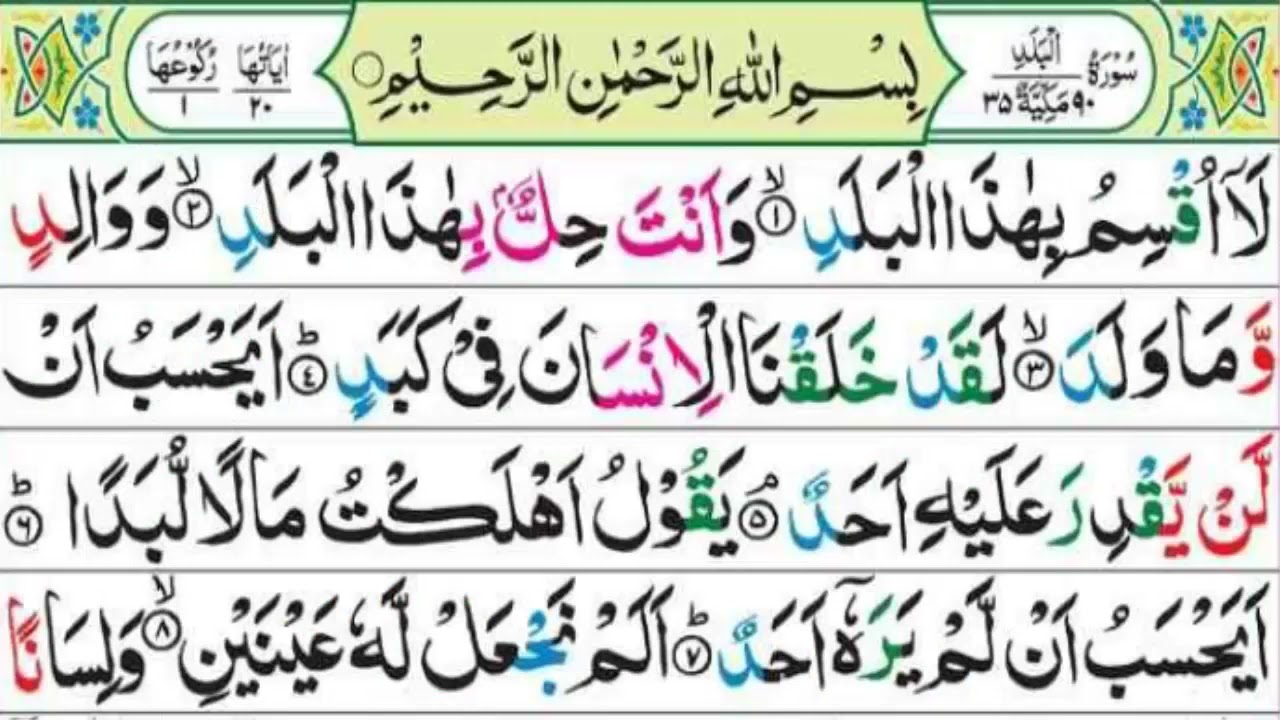 سُوْرَةُ الْبَلَدِ ٩٠ مَكِّيَّةٌ ٣٥
بِسْمِ اللّٰهِ الرَّحْمٰنِ الرَّحِيْمِ
اٰيَاتُهَا ٢٠ رُكُوْعُهَا ١
لَاۤ اُقْسِمُ بِهٰذَا الْبَلَدِ ۙ‏﴿١﴾ وَاَنْتَ حِلٌّۢ بِهٰذَا الْبَلَدِ ۙ‏﴿٢﴾ وَوَالِدٍ
وَّمَا وَلَدَ ۙ‏﴿٣﴾ لَقَدْ خَلَقْنَا الْاِنْسَانَ فِىْ كَبَدٍ ؕ‏﴿٤﴾ اَيَحْسَبُ اَنْ
لَّنْ يَّقْدِرَ عَلَيْهِ اَحَدٌ ۘ‏﴿٥﴾ يَقُوْلُ اَهْلَكْتُ مَالًا لُّبَدًا ؕ‏﴿٦﴾
اَيَحْسَبُ اَنْ لَّمْ يَرَهٗۤ اَحَدٌ ؕ‏﴿٧﴾ اَلَمْ نَجْعَلْ لَّهٗ عَيْنَيْنِ ۙ‏﴿٨﴾ وَلِسَانًا